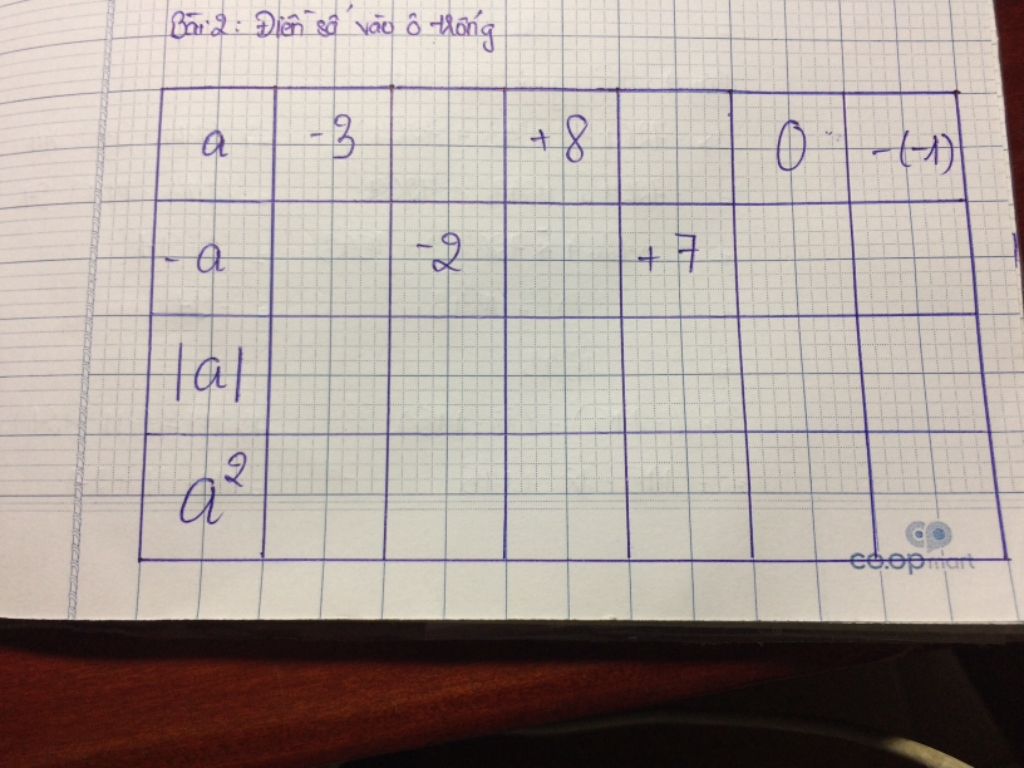 Bài 2: Điền số vào ô trống
a -3 +8 0 -(-1)
-a -2 +7
|a|
a²
co.opmart